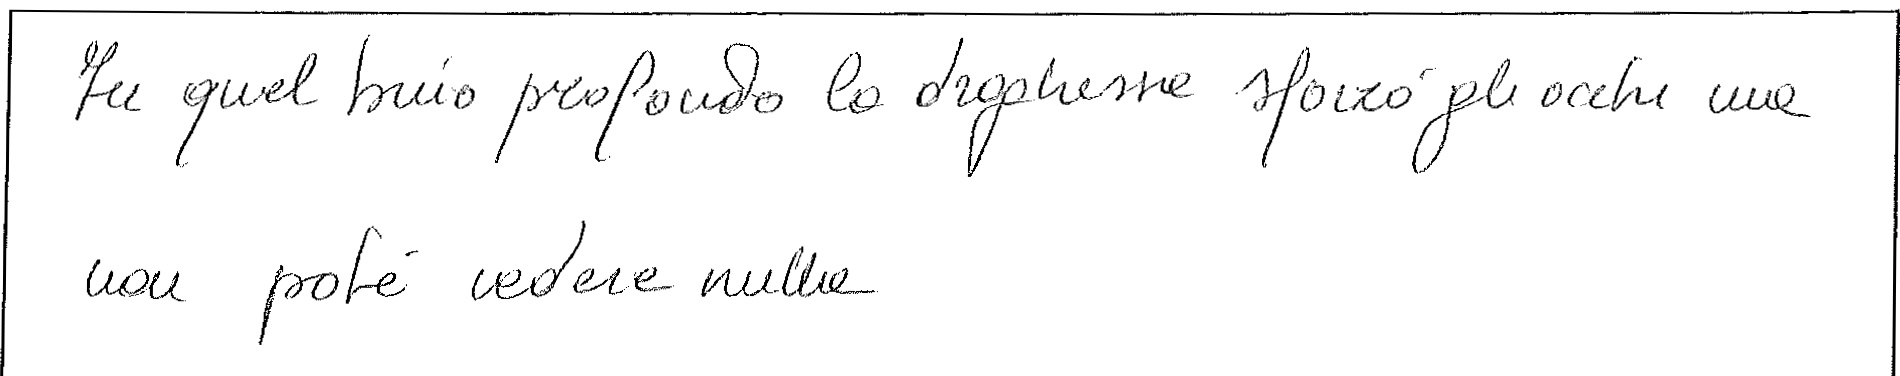 In quel buio profondo la dragonessa sforzò gli occhi ma
non poté vedere nulla